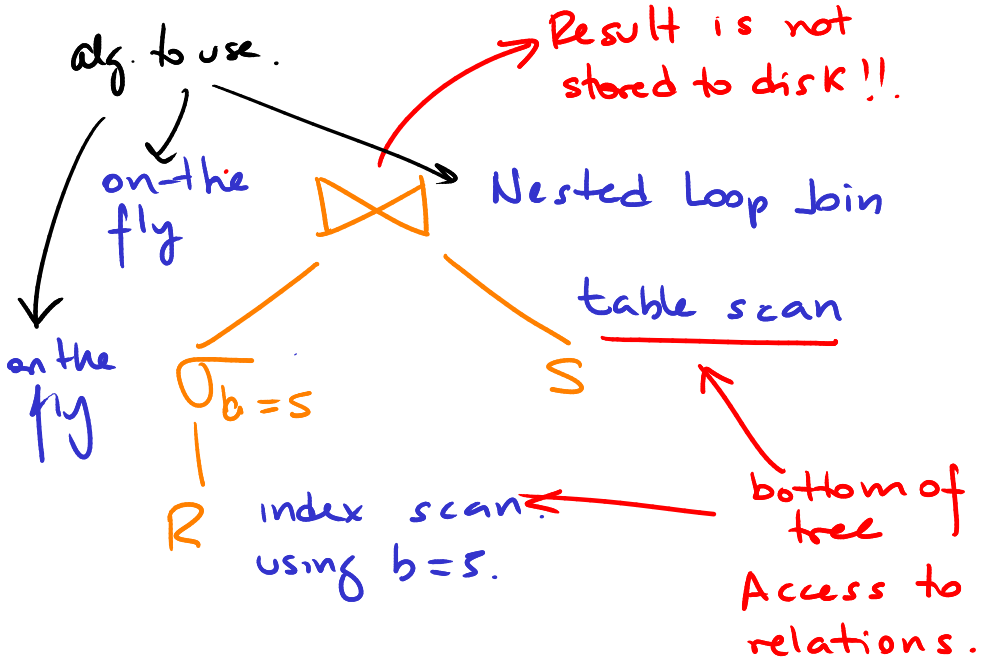 alg. to use.
Result is not
stored to disk!!.
on-the
fly
⋈
Nested Loop Join
on the
fly
σ b=5
S
table scan
R
index scan.
using b=5.
bottom of
tree
Access to
relations.